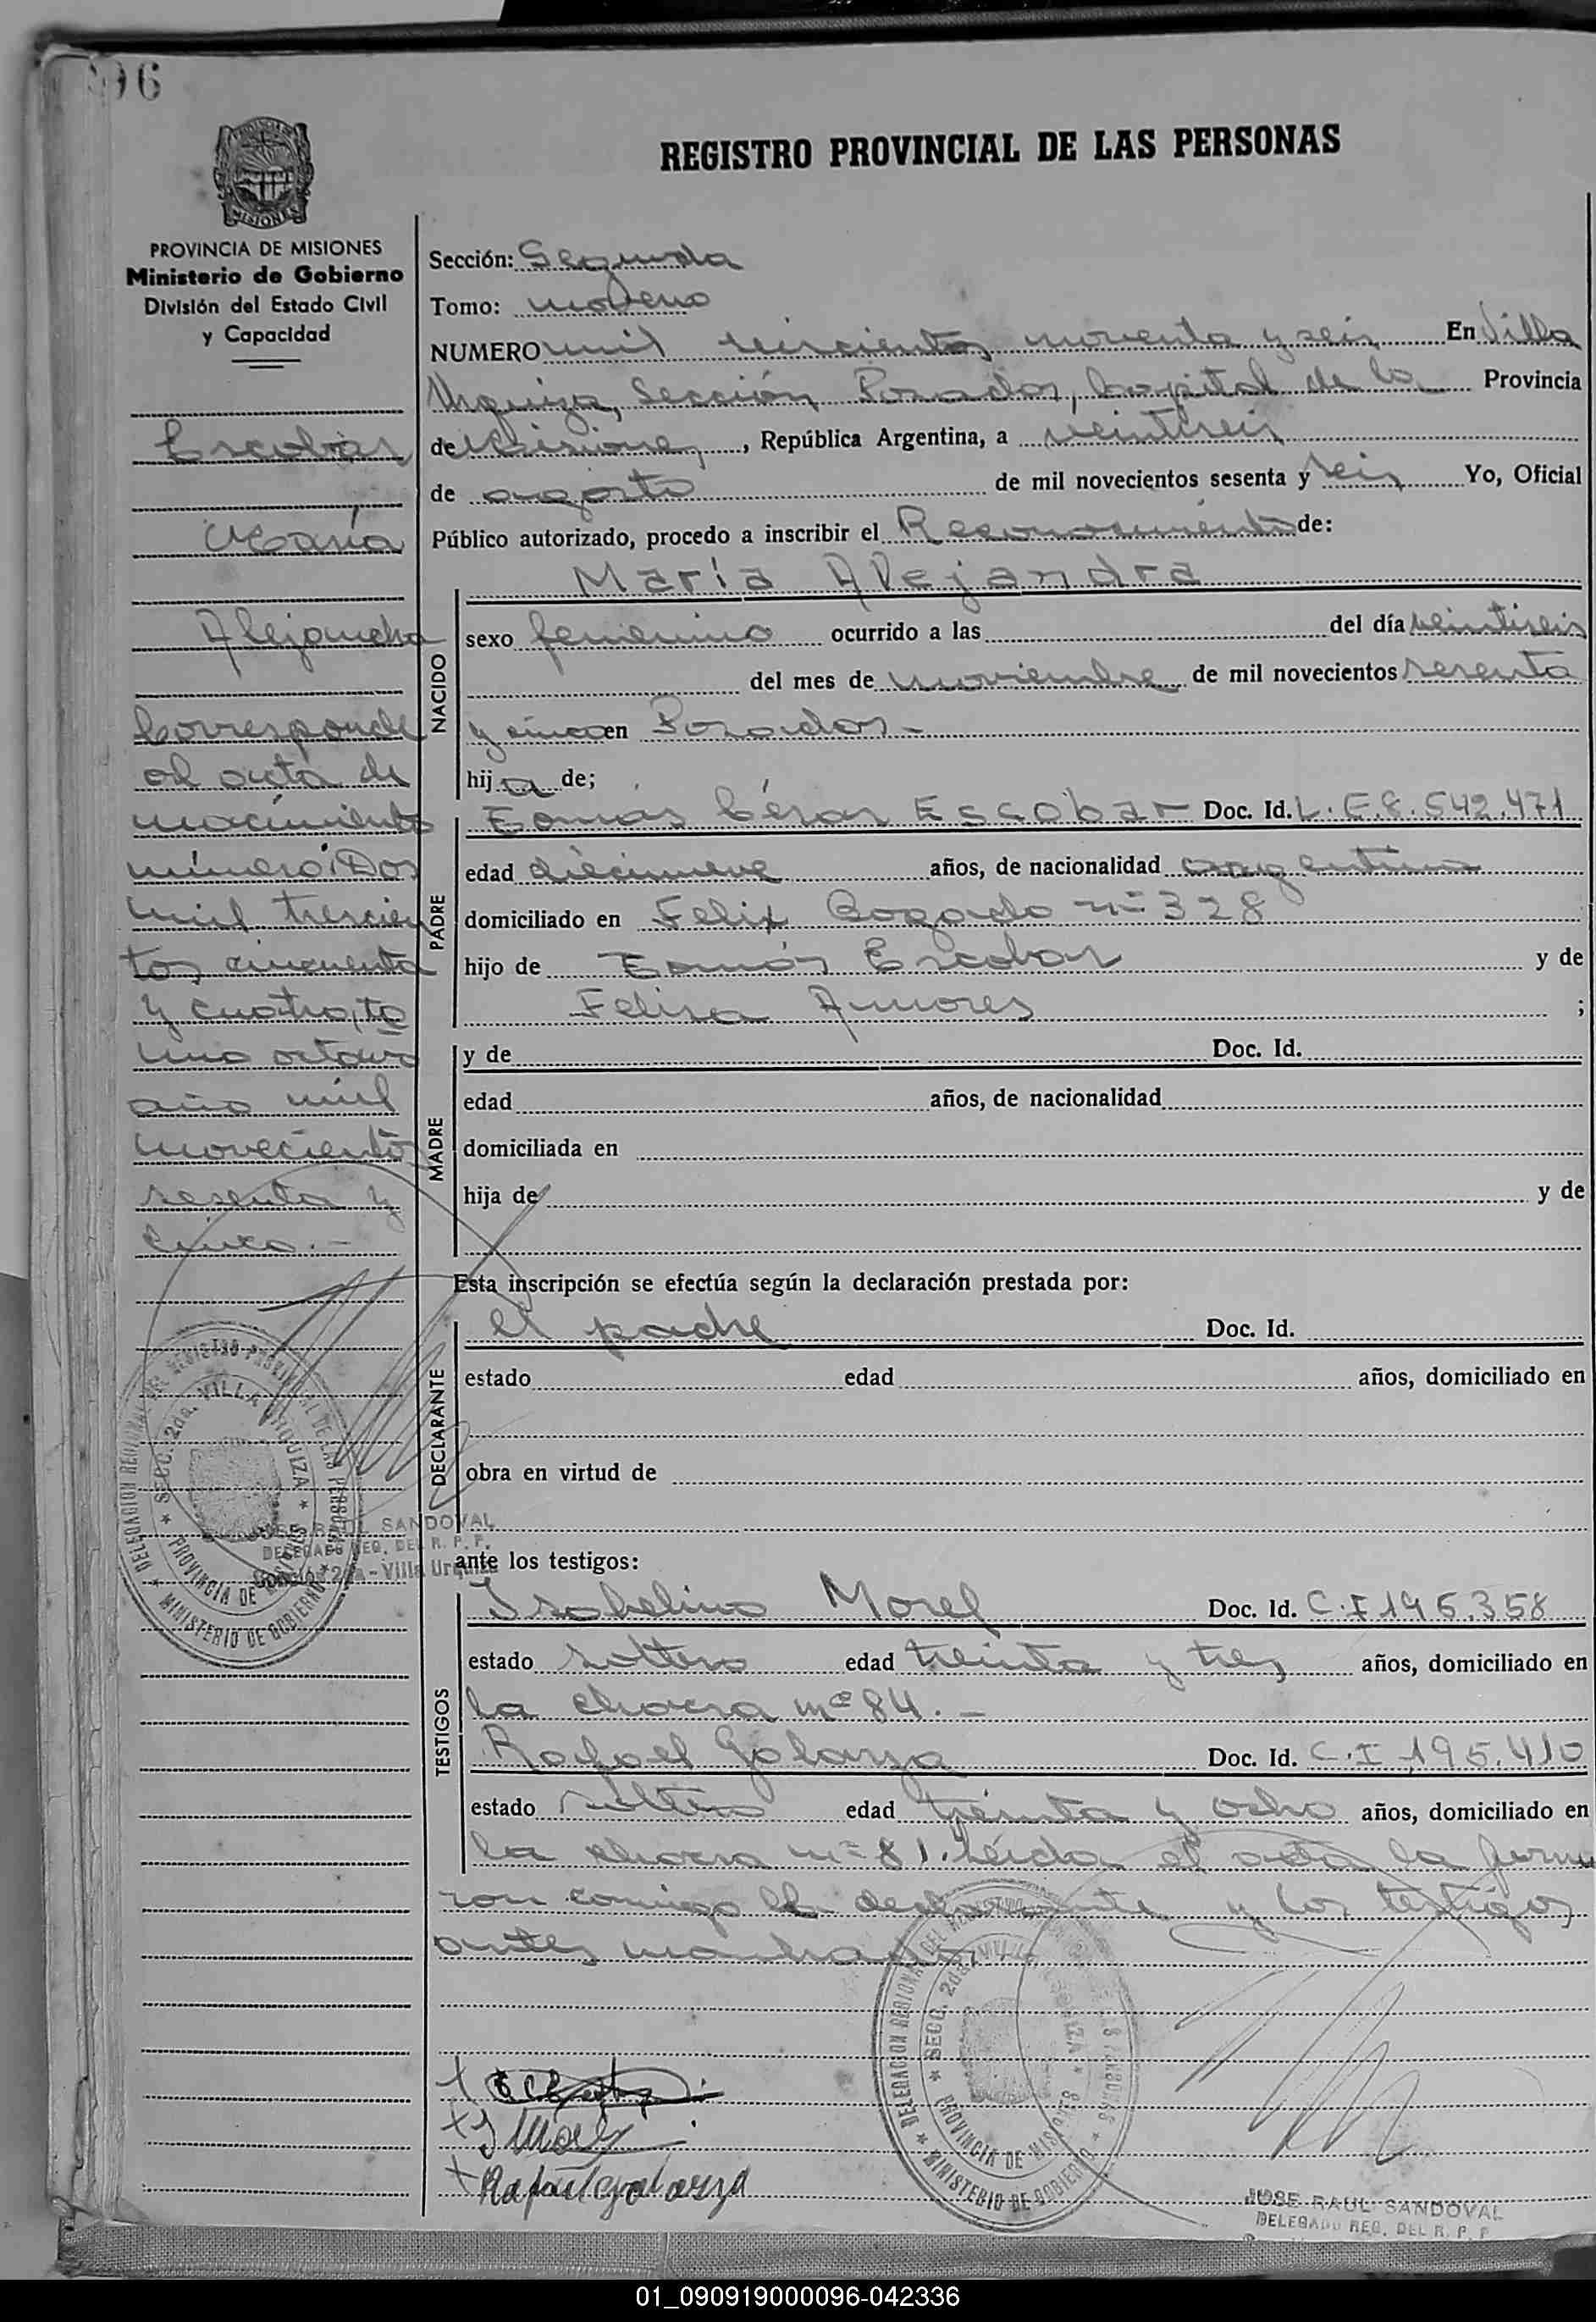 96
REGISTRO PROVINCIAL DE LAS PERSONAS
MISIONES
PROVINCIA DE MISIONES
Ministerio de Gobierno
División del Estado Civil
y Capacidad
Escobar
María
Alejandra
Corresponde
al acta de
nacimiento
número: Dos
mil trescien
tos cincuenta
y cuatro, to
mo octavo
año mil
novecientos
sesenta y
cinco.-
Sección: Segunda
Tomo: noveno
NUMERO mil seiscientos noventa y seis En Villa
Urquiza, Sección Posadas, Capital de la Provincia
de Misiones, República Argentina, a veintiseis
de agosto de mil novecientos sesenta y seis Yo, Oficial
Público autorizado, procedo a inscribir el Reconocimiento de:
María Alejandra
NACIDO
sexo femenino ocurrido a las del día veintiseis
del mes de noviembre de mil novecientos sesenta
y cinco en Posadas-
hija de;
PADRE
Tomás César Escobar Doc. Id. L.E.8.542.471
edad diecinueve años, de nacionalidad argentina
domiciliado en Felix Bogado nº 328
hijo de Tomás Escobar y de
Felisa Amores ;
MADRE
y de Doc. Id.
edad años, de nacionalidad
domiciliada en
hija de y de
Esta inscripción se efectúa según la declaración prestada por:
DECLARANTE
el padre Doc. Id.
estado edad años, domiciliado en
obra en virtud de
ante los testigos:
TESTIGOS
Isabelino Morel Doc. Id. C.I 195.358
estado soltero edad treinta y tres años, domiciliado en
la chacra nº 84.-
Rafael Galarza Doc. Id. C.I 195.410
estado soltero edad treinta y ocho años, domiciliado en
la chacra nº 81. Leída el acta la firma
ron conmigo el declarante y los testigos
antes nombrados
J Morel
Rafael galarza
DELEGACION REGIONAL DEL REGISTRO PROVINCIAL DE LAS PERSONAS
SECC. 2da. VILLA URQUIZA
PROVINCIA DE MISIONES
MINISTERIO DE GOBIERNO
JOSE RAUL SANDOVAL
DELEGADO REG. DEL R. P. P.
Sección 2da - Villa Urquiza
DELEGACION REGIONAL DEL REGISTRO
SECC. 2da. VILLA URQUIZA
PROVINCIA DE MISIONES
MINISTERIO DE GOBIERNO
JOSE RAUL SANDOVAL
DELEGADO REG. DEL R. P. P
01_090919000096-042336